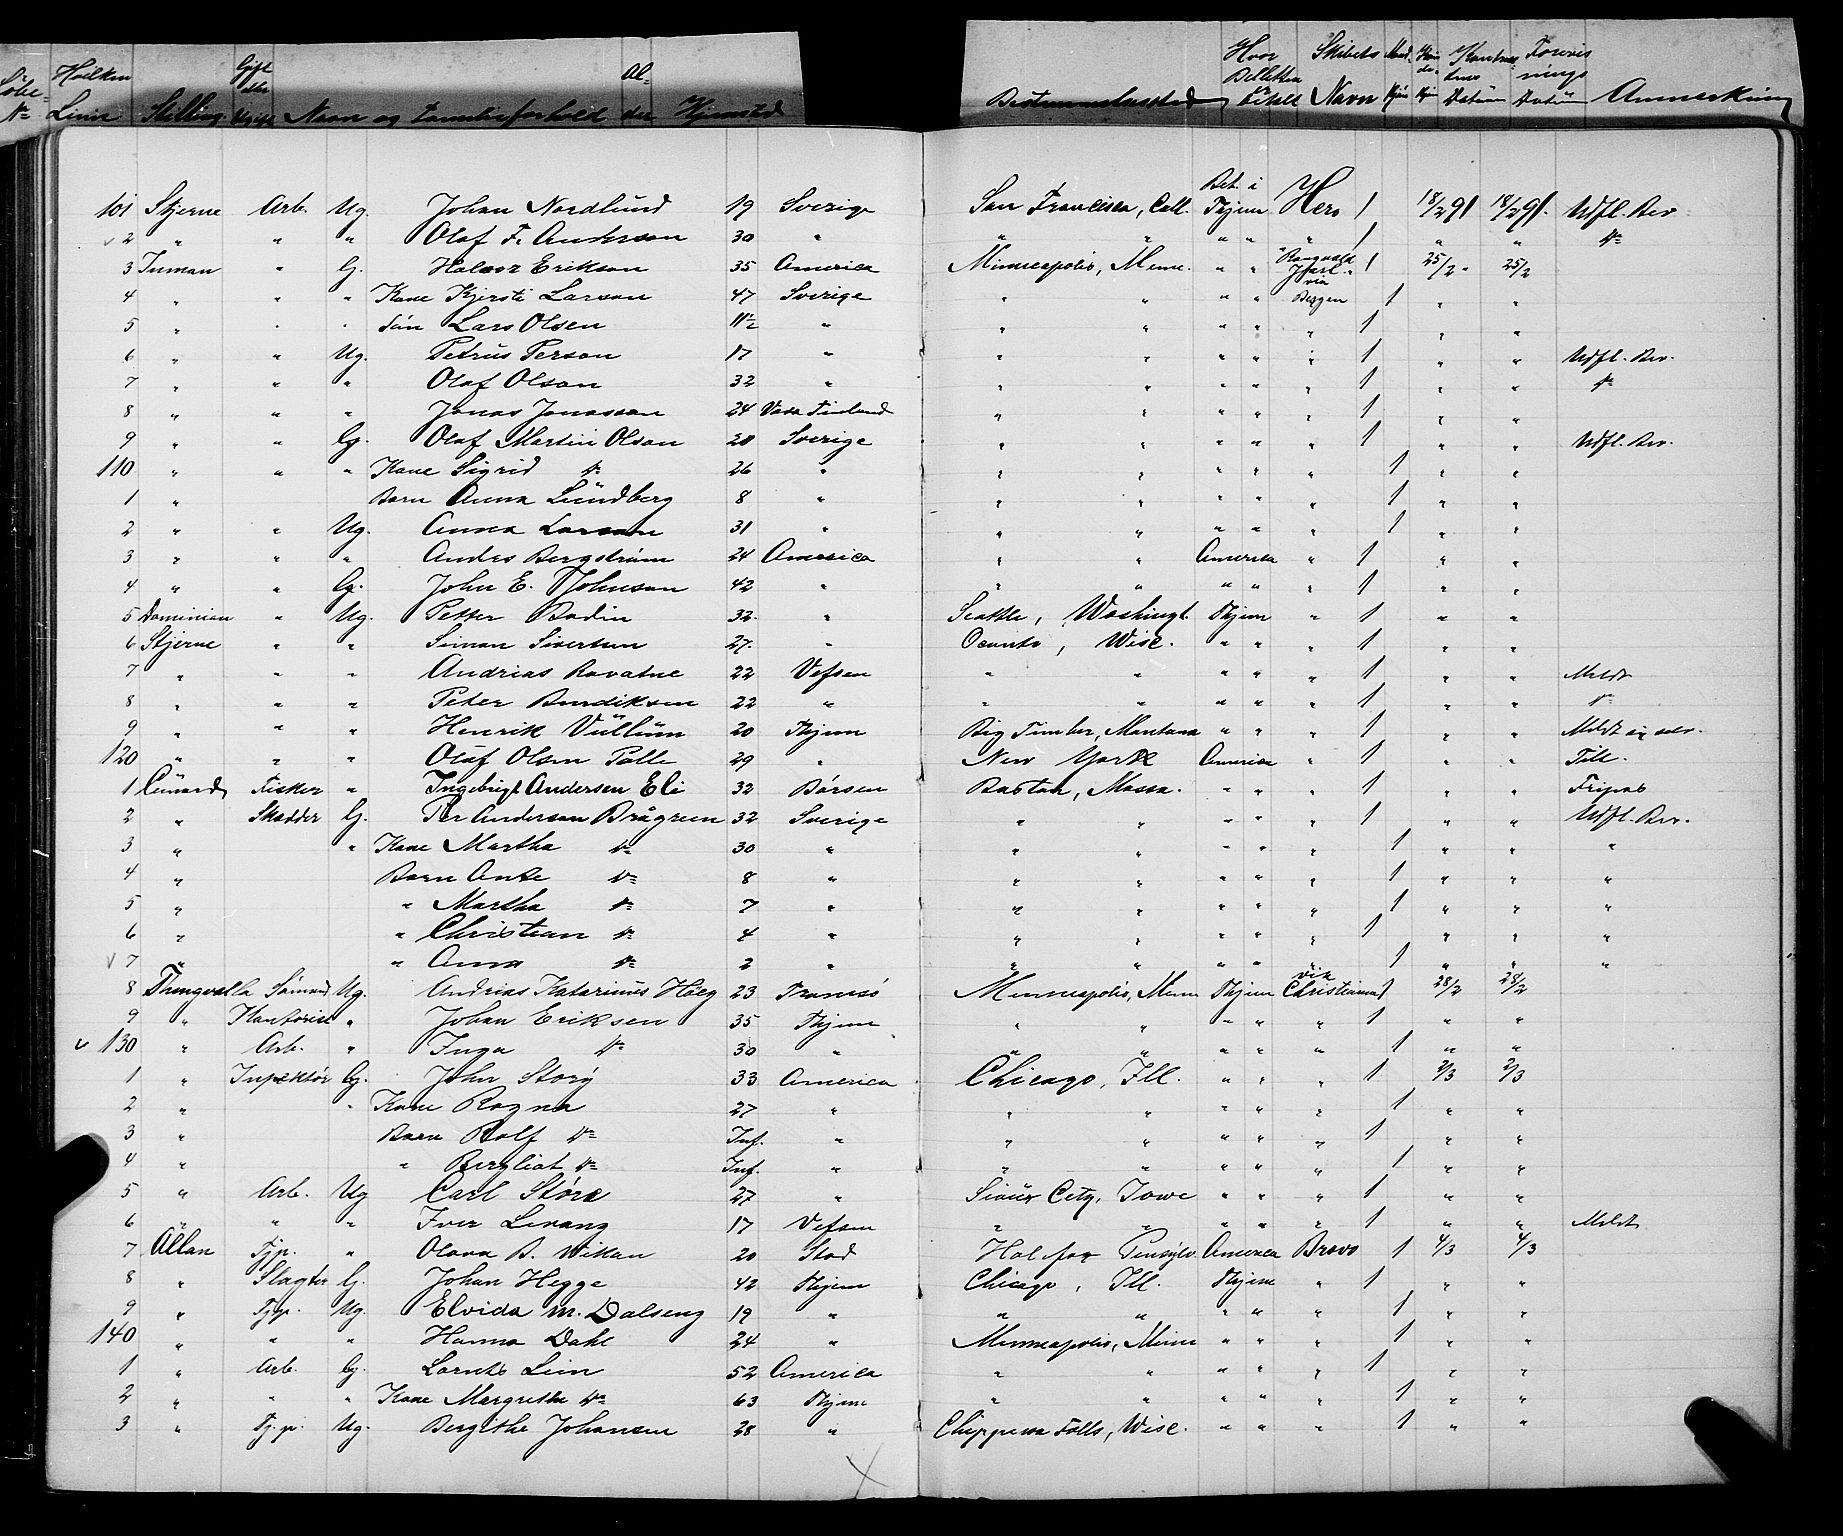 Löbe- Hvilken Gift Al- Hvor Skibets Mand Kvin Kontrac Forevis
№ Linie Stilling eller Ugift Navn og Familieforhold der Hjemsted Bestemmelsessted Billetten er betalt Navn Kjön Kjön Datum Datum Anmerkning
101 Stjerne Arb. Ug. Johan Nordlund 19 Sverige San Francisco, Call. Bet. i Thjem Hero 1 18/2 91 18/2 91. Udfl. Bev
2 " " " Olof F. Anderson 30 " " " " " " 1 " " do
3 Inman " G. Halvor Erikson 35 America Minneapolis, Minn. " " Ragnvald Jarl via 1 25/2 " 25/2
4 " " " Kone Kjersti Larson 47 Sverige " " " " Bergen 1 " "
5 " " " Sön Lars Olsen 11½ " " " " " " 1 " "
6 " " Ug. Petrus Person 17 " " " " " " 1 " " Udfl. Bev.
7 " " " Olof Olson 32 " " " " " " 1 " " do
8 " " " Jonas Jonasson 24 Vasa Finland " " " " " 1 " "
9 " " G. Olof Martin Olson 28 Sverige " " " " " 1 " " Udfl. Bev.
110 " " " Kone Sigrid do 26 " " " " " " 1 " "
1 " Barn Anna Lündberg 8 " " " " " " 1 " "
2 " " Ug. Anna Larson 31 " " " " " " 1 " "
3 " " " Andrs Bergström 24 America " " America " 1 " "
4 " " G. John E. Johnson 42 " " " " " " 1 " "
5 Dominion " Ug. Petter Bodin 32. " Seattle, Washingt. Thjem " 1 " "
6 Stjerne " " Simon Sivertsen 27. " Oconto, Wisc. " " " 1 " "
7 " " " Andrias Ravatne 22 Vefsen " " " " " 1 " " Meldt
8 " " " Peter Bendiksen 22 " " " " " " 1 " " do
9 " " " Henrik Vüllüm 20 Thjem Big Timber, Montana " " " 1 " " Meldt
120 " " " Oluf Olsen Palle 29 " New York America " 1 " " Till.
1 Cunard Fisker " Ingebrigt Andersen Eli 32 Börsen Boston, Massa. " " " 1 " " Fripas
2 " Skrædder G. Per Anderson Brågren 32 Sverige " " " " " 1 " " Udfl. Bev.
3 " " Kone Martha do 30 " " " " " " 1 " " "
4 " Barn do 8 " " " " " " 1 " " "
5 " " Martha do 7 " " " " " " 1 " " "
6 " " Christian do 4 " " " " " " 1 " " "
7 " " Anna do 2 " " " " " " 1 " " "
8 Thingvalla Sömand Ug. Andrias Katarinus Höeg 23 Tromsö Minneapolis, Minn Thjem via Christiania 1 28/2 28/2
9 " Kontorist " Johan Eriksen 35 Thjem " " " " " 1 " "
130 " Arb. " Inga do 30 " " " " " " 1 " "
1 " Inpektör G. John Storÿ 33 America Chicago, Ill. " " " 1 2/3 2/3
2 " " Kone Ragna 27 " " " " " " 1 " "
3 " Barn Rolf do Inf. " " " " " " 1 " "
4 " " Bergliot do Inf. " " " " " " 1 " "
5 " Arb. Ug Carl Störe 27 " Sioux City, Iowe " " " 1 " "
6 " " " Iver Levang 17 Vefsen " " " " " 1 " " Meldt
7 Allan Tjp. " Olava B. Wikan 20 Stod Halifax Pensylv. America Bravo 1 4/3 4/3
8 " Slagter G. Johan Hegge 42 Thjem Chicago, Ill. Thjem " 1 " "
9 " Tjp. Ug. Elvida M. Dalseng 19 " " " " " " 1 " "
140 " " " Hanna Dahl 24 " Minneapolis, Minn " " " 1 " "
1 " Arb. G. Lornts Lein 52 America " " " " " 1 " "
2 " " " Kone Margrethe do 63 Thjem " " " " " 1 " "
3 " Tj.p. Ug. Bergithe Johansen 28 " Chippewa Falls, Wisc. " " " 1 " "